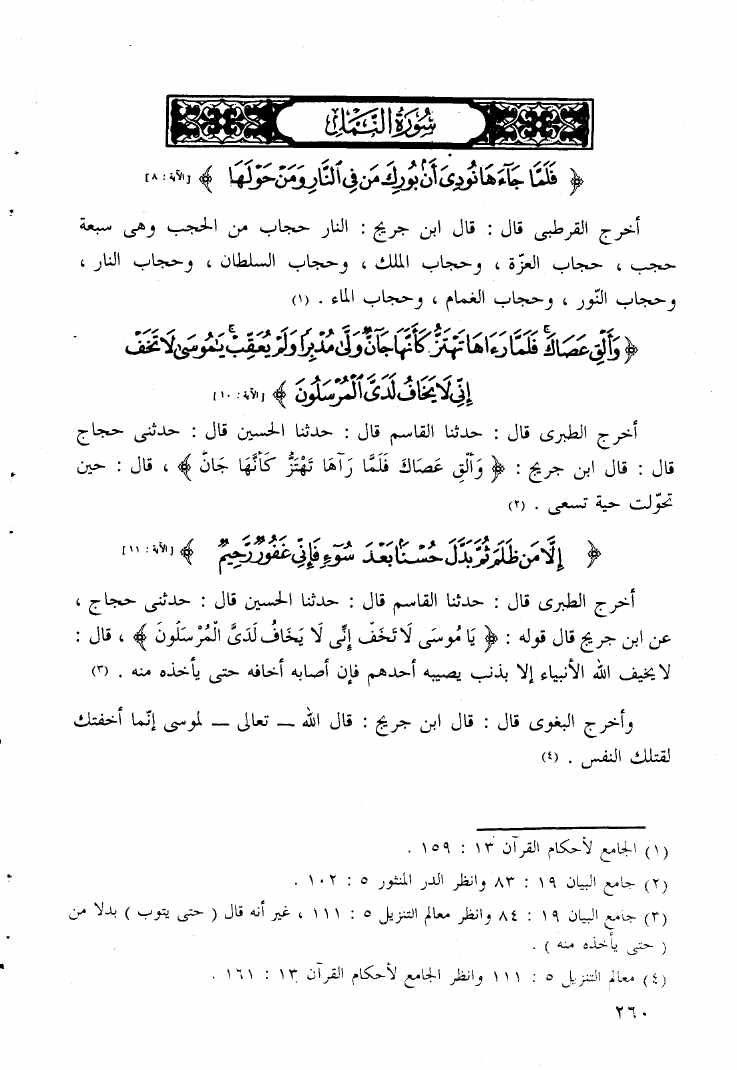 سُورَةُ النَّمْل
﴿ فَلَمَّا جَآءَهَا نُودِىَ أَنۢ بُورِكَ مَن فِى ٱلنَّارِ وَمَنْ حَوْلَهَا ﴾ [الآية : ٨]
أخرج القرطبى قال : قال ابن جريج : النار حجاب من الحجب وهى سبعة
حجب ، حجاب العزّة ، وحجاب الملك ، وحجاب السلطان ، وحجاب النار ،
وحجاب النّور ، وحجاب الغمام ، وحجاب الماء . (١)
﴿ وَأَلْقِ عَصَاكَ ۚ فَلَمَّا رَءَاهَا تَهْتَزُّ كَأَنَّهَا جَآنٌّ وَلَّىٰ مُدْبِرًا وَلَمْ يُعَقِّبْ ۚ يَٰمُوسَىٰ لَا تَخَفْ
إِنِّى لَا يَخَافُ لَدَىَّ ٱلْمُرْسَلُونَ ﴾ [الآية : ١٠]
أخرج الطبرى قال : حدثنا القاسم قال : حدثنا الحسين قال : حدثنى حجاج
قال : قال ابن جريج : ﴿ وَأَلْقِ عَصَاكَ فَلَمَّا رَآهَا تَهْتَزُّ كَأَنَّهَا جَانٌّ ﴾ ، قال : حين
تحوّلت حية تسعى . (٢)
﴿ إِلَّا مَن ظَلَمَ ثُمَّ بَدَّلَ حُسْنًۢا بَعْدَ سُوٓءٍ فَإِنِّى غَفُورٌ رَّحِيمٌ ﴾ [الآية : ١١]
أخرج الطبرى قال : حدثنا القاسم قال : حدثنا الحسين قال : حدثنى حجاج ،
عن ابن جريج قال قوله : ﴿ يَا مُوسَى لَا تَخَفْ إِنِّى لَا يَخَافُ لَدَىَّ الْمُرْسَلُونَ ﴾ ، قال :
لا يخيف الله الأنبياء إلا بذنب يصيبه أحدهم فإن أصابه أخافه حتى يأخذه منه . (٣)
وأخرج البغوى قال : قال ابن جريج : قال الله — تعالى — لموسى إنّما أخفتك
لقتلك النفس . (٤)
(١) الجامع لأحكام القرآن ١٣ : ١٥٩ .
(٢) جامع البيان ١٩ : ٨٣ وانظر الدر المنثور ٥ : ١٠٢ .
(٣) جامع البيان ١٩ : ٨٤ وانظر معالم التنزيل ٥ : ١١١ ، غير أنه قال ( حتى يتوب ) بدلا من
( حتى يأخذه منه ) .
(٤) معالم التنزيل ٥ : ١١١ وانظر الجامع لأحكام القرآن ١٣ : ١٦١ .
٢٦٠